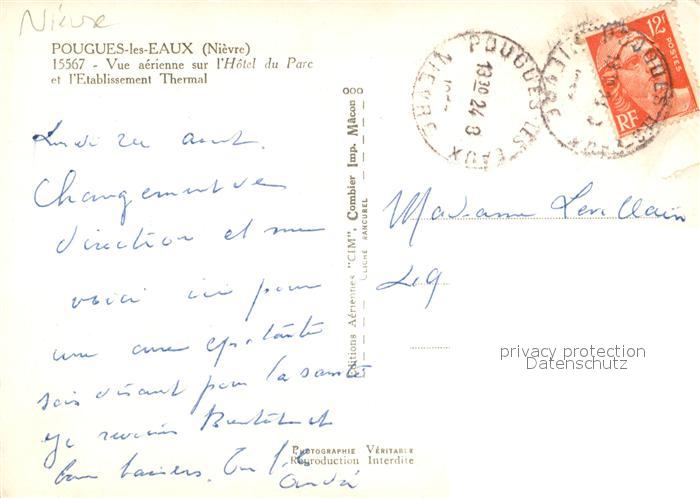 Nièvre
POUGUES-les-EAUX (Nièvre)
15567 - Vue aérienne sur l'Hôtel du Parc
et l'Etablissement Thermal
Lundi 22 aout.
Changement de
direction et me
voici ici pour
une cure
soi disant pour la santé
Je reviens Bientôt et
bons baisers.
André
Editions Aériennes "CIM", Combier Imp. Mâcon
CLICHÉ RANCUREL
PHOTOGRAPHIE VÉRITABLE
Reproduction Interdite
POUGUES LES EAUX
NIEVRE
13 30 24 8
12F
POSTES
RF
Madame Levillain
privacy protection
Datenschutz